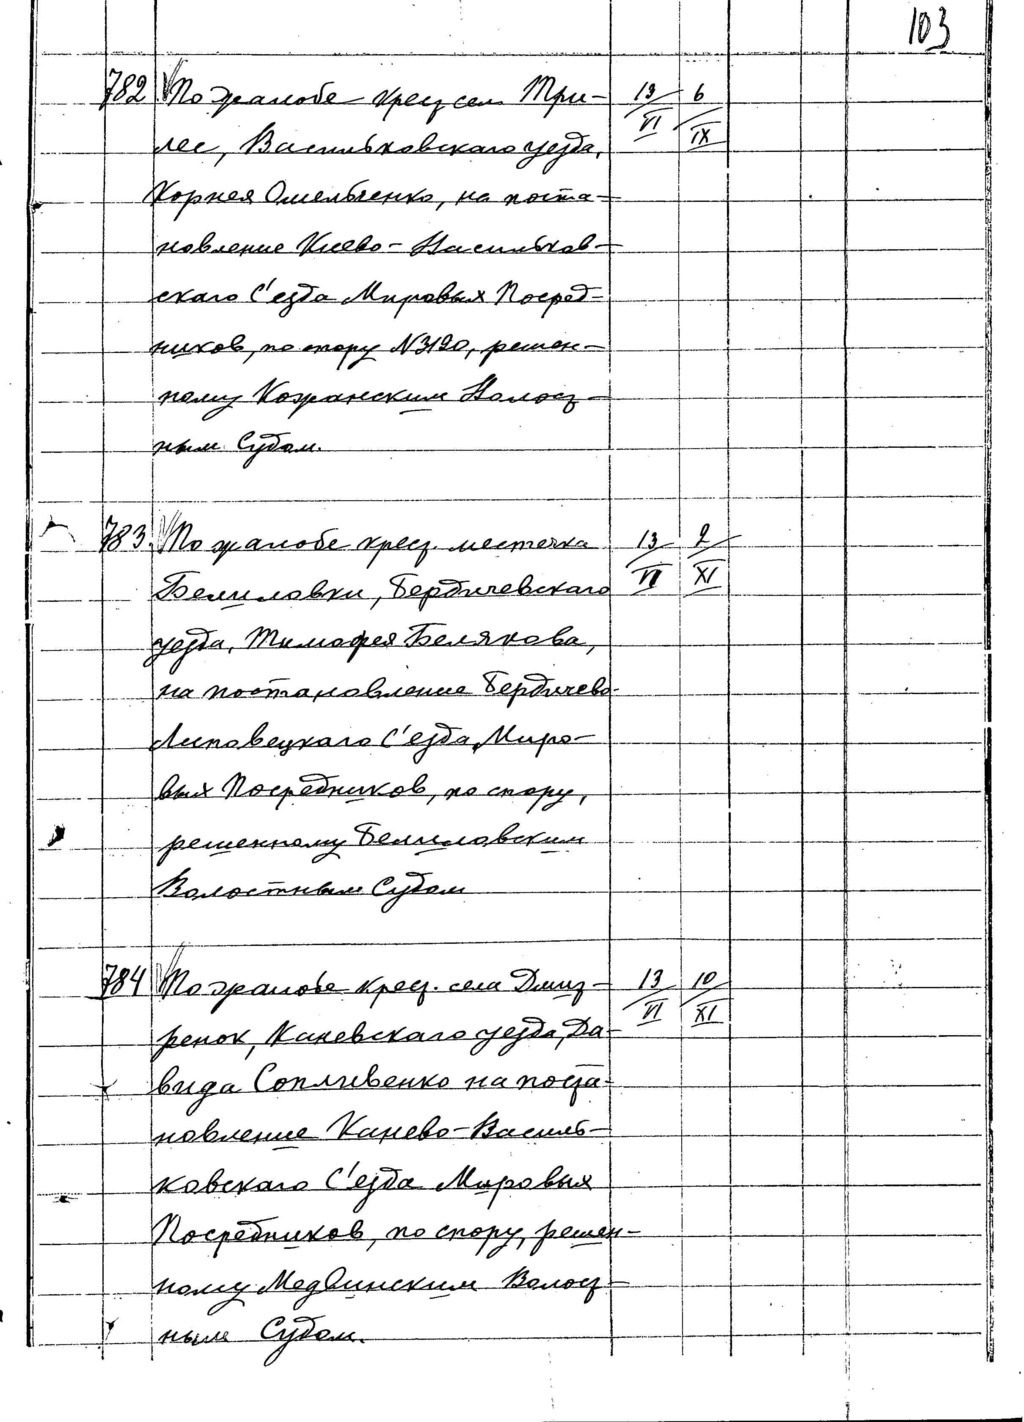 103
782 По жалобе крест. сел. Три- 13/VI 6/IX
лес, Васильковскаго уезда,
Корнея Омельченко, на поста-
новление Киево-Васильков-
скаго С'езда Мировых Посред-
ников, по спору №3120, решен-
ному Кожанским Волост-
ным Судом.
783. По жалобе крест. местечка 13/VI 2/XI
Белиловки, Бердичевскаго
уезда, Тимофея Белякова,
на постановление Бердичево-
Липовецкаго С'езда Миро-
вых Посредников, по спору,
решенному Белиловским
Волостным Судом
784 По жалобе крест. села Дмит- 13/VI 10/XI
ренок, Каневскаго уезда, Да-
вида Сопливенко на поста-
новление Канево-Василь-
ковскаго С'езда Мировых
Посредников, по спору, решен-
ному Медвинским Волост-
ным Судом.